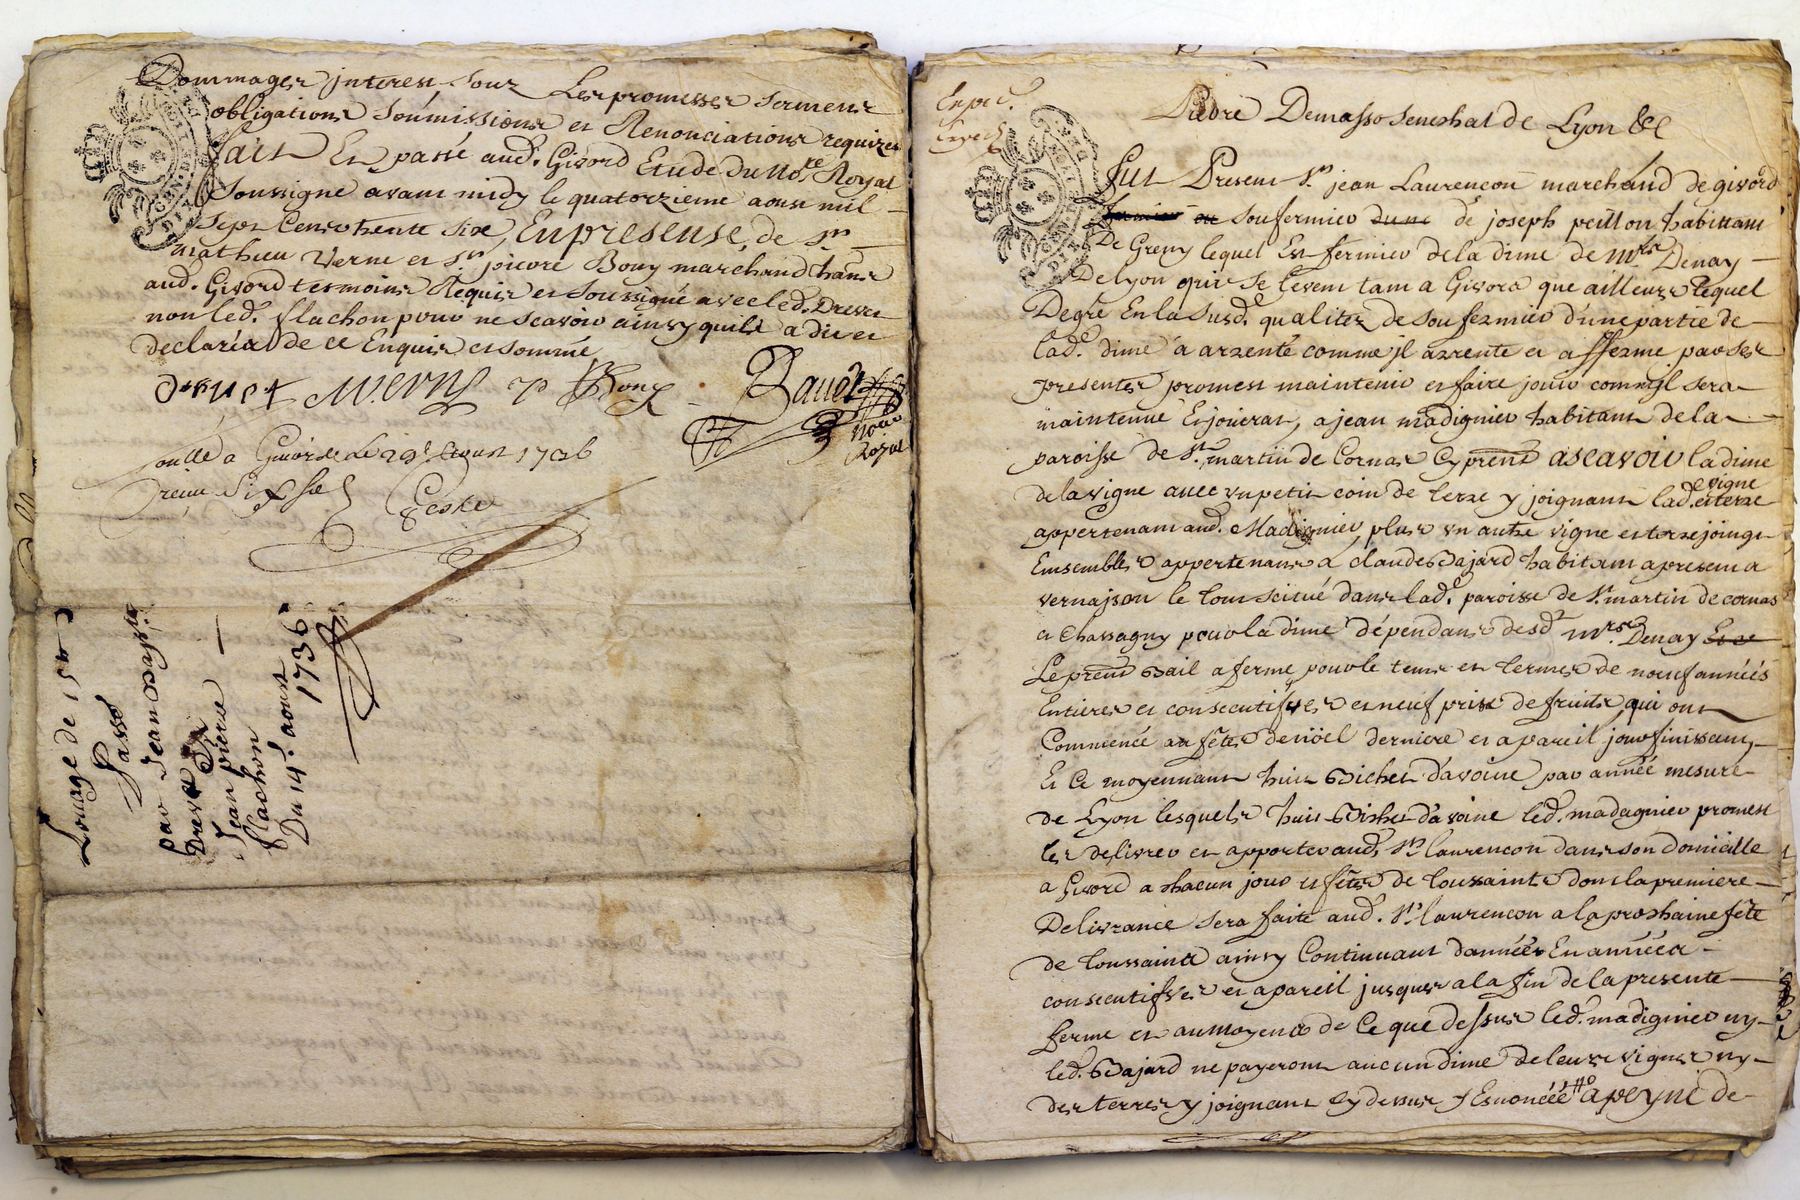 Dommages interest, sour Les promesses serment
obligations Soûmissions et Renonciations requizes
fait Et passé aud. Givord Etude du No.re Royal
Soussigne avant midy le quatorzieme aoust mil
sept Cens trente Six, En presense, de Sr.
mathieu Verne et Sr. pierre Bouy marchand ha.ns
aud. Givord tesmoins Requis et Soussignés avec led. Drevet
non led. flachon pour ne scavoir ainsy quil a dit et
declaré de ce Enquis et sommé
drevet M Verny P Bouy
Noire
Royal
a Givord Le 29e. Aoust 1736
reçu Six sols
Louage de 15 #
Passé
par Jean
Drevet a
Jean pierre
flachon
Du 14e. aoust
1736
Expd.
Exped.
Pierre Demasso Seneshal de Lyon &c
fut Present Sr. jean Laurencon marchand de givord
fermier ou soufermier dune de joseph peillon habittant
De Greny lequel Est fermier de la dime de Mrs. Denay
De Lyon qui se levent tam a Givord que ailleurs Lequel
De gré En la susd. qualitez de soufermier d'une partie de
lad. dime a arrenté comme jl arrente et afferme par ses
presentes promest maintenir et faire jouir comm jl sera
maintenue Et jouirat, a jean madignier habitant de la
paroisse de St. martin de Cornas Cy prent ascavoir la dime
de la vigne avec un petit coin de terre y joignant lad. vigne et terre
appertenant aud. Madignier, plus vn autre vigne et terre joings
Ensembles appertenans a claude Bajard habitant a present a
vernajson le tout scitué dans lad. paroisse de St. martin de cornas
et Chassagny pour la dime dépendans desd. Mrs. Denay Et ce
Le prent Bail a ferme pour le tems et termes de neuf années
Entieres et consecutifves et neuf prise de fruits, qui ont
Commencé au fêtes de nöel derniere et a pareil jour finissant,
Et Ce moyennant huit Bichet d'avoine par année mesure
de Lyon lesquels huit Bichet d'avoine led. madagnier promest
les delivrer et apporter aud. Sr. laurencon dans son domicille
a Givord a chacun jour et fêtes de toussaints dont la premiere
Delivrance sera faite aud. Sr. laurencon a la proshaine fête
de toussaint ainsy Continuant d'années En années
consecutifves et a pareil jusques a la fin de la presente
ferme et au moyens de Ce que dessus led. madignier ny
led. Bajard ne payeront aucun dime de leurs vignes ny
des terres y joignant Cy dessus Esnoncéé a peyne de